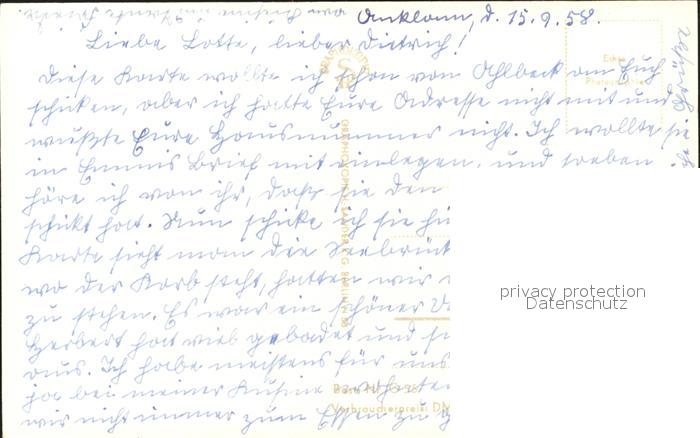 Anklam, d. 15.9.58.
Liebe Lotte, lieber Dietrich!
Diese Karte wollte ich schon von Ahlbeck an Euch
schicken, aber ich hatte Eure Adresse nicht mit und
wußte Eure Hausnummer nicht. Ich wollte sie
in Emmis Brief mit einlegen, und soeben
höre ich von ihr, daß sie den
schickt hat. Nun schicke ich sie
Karte sieht man die
wo der Korb steht, hatten wir
zu stehen. Es war ein schöner
Herbert hat viel gebadet und
aus. Ich habe meistens für uns
ja bei meiner Kusine wohnten
wir nicht immer zum Essen zu
Echte
privacy protection
Datenschutz
Verbraucherpreis: DM